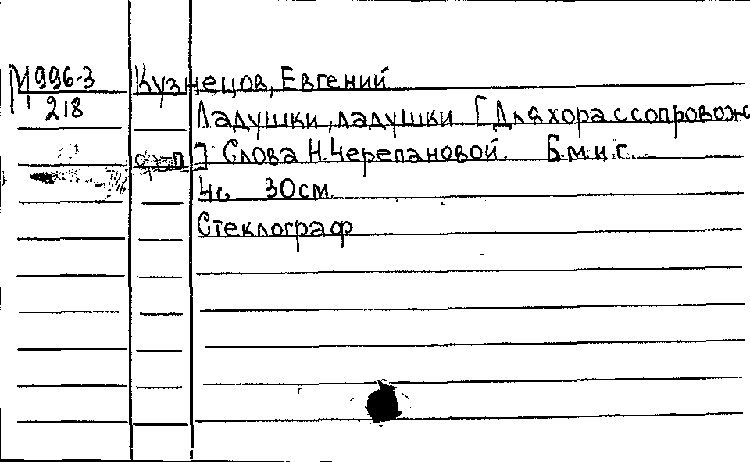 М996-3 Кузнецов, Евгений
218
Ладушки, ладушки [Для хора с сопровож
] Слова Н. Черепановой. Б.м. и г.
4с. 30см.
Стеклограф